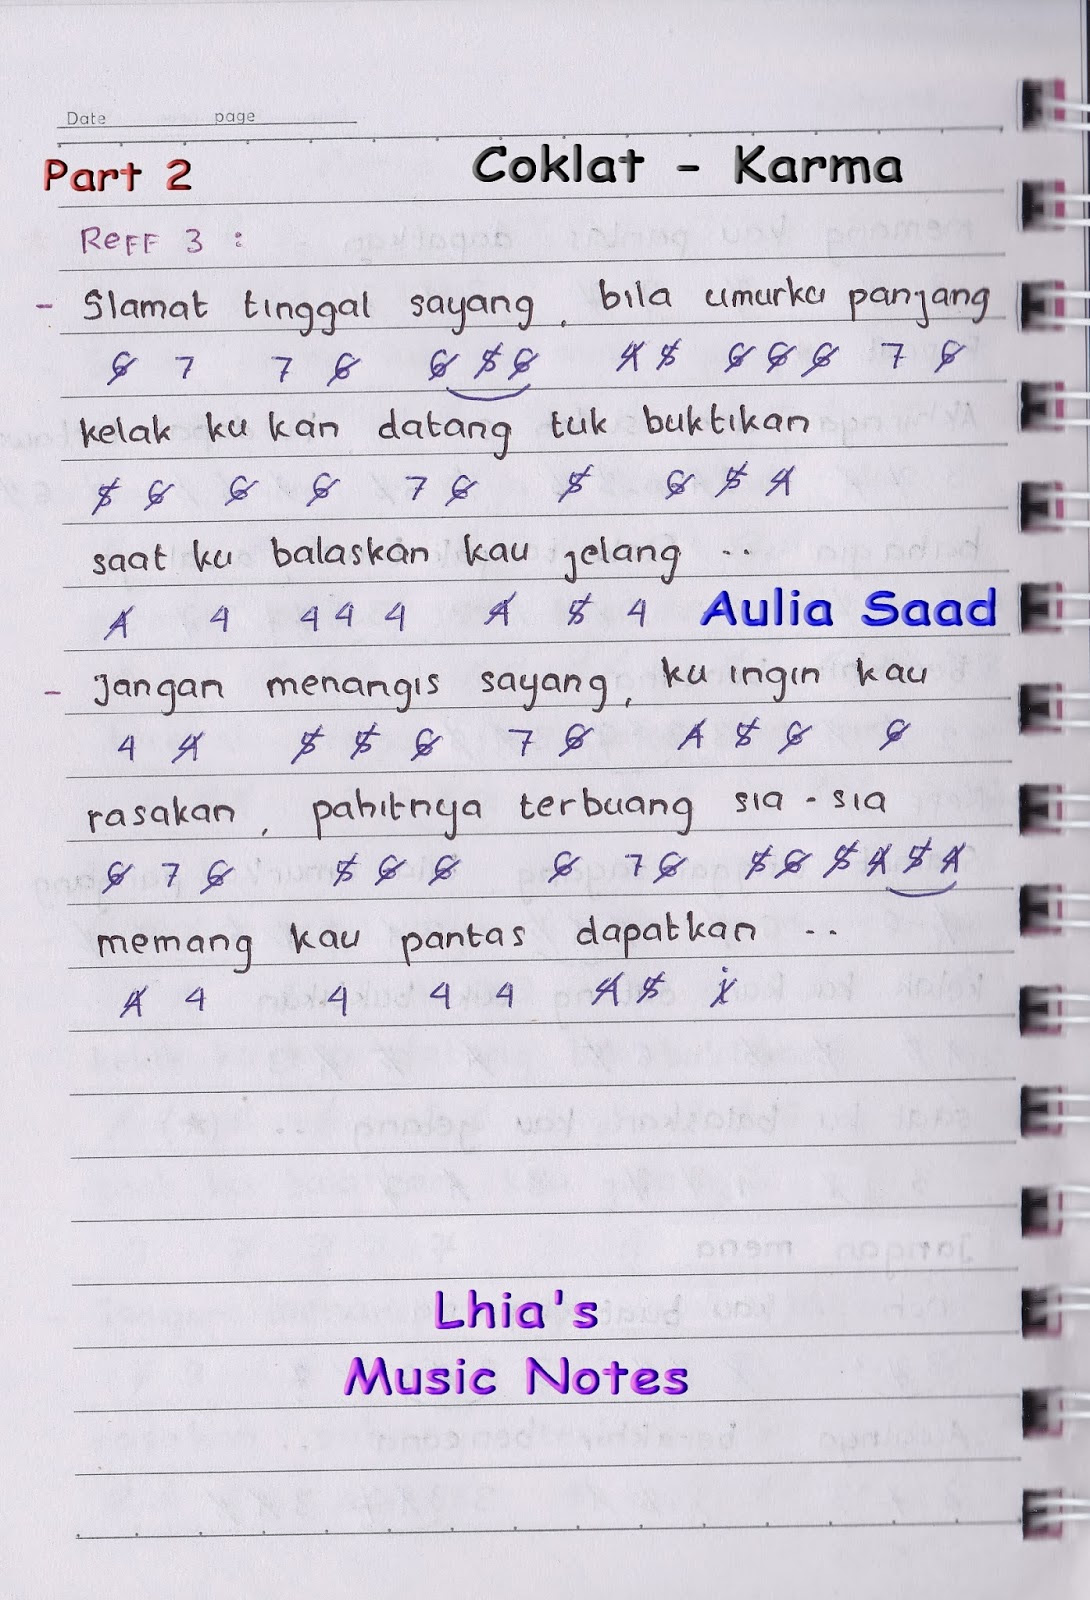 Date page
Part 2 Coklat - Karma
Reff 3 :
- Slamat tinggal sayang, bila umurku panjang
6̸ 7 7 6̸ 6̸ 5̸ 6̸ 4̸ 5̸ 6̸ 6̸ 6̸ 7 6̸
kelak ku kan datang tuk buktikan
5̸ 6̸ 6̸ 6̸ 7 6̸ 5̸ 6̸ 5̸ 4̸
saat ku balaskan kau jelang ..
4̸ 4 4 4 4 4̸ 5̸ 4 Aulia Saad
- jangan menangis sayang, ku ingin kau
4 4̸ 5̸ 5̸ 6̸ 7 6̸ 4̸ 5̸ 6̸ 6̸
rasakan, pahitnya terbuang sia - sia
6̸ 7 6̸ 5̸ 6̸ 6̸ 6̸ 7 6̸ 5̸ 6̸ 5̸ 4̸ 5̸ 4̸
memang kau pantas dapatkan ..
4̸ 4 4 4 4 4̸ 5̸ 1̸̇
Lhia's
Music Notes